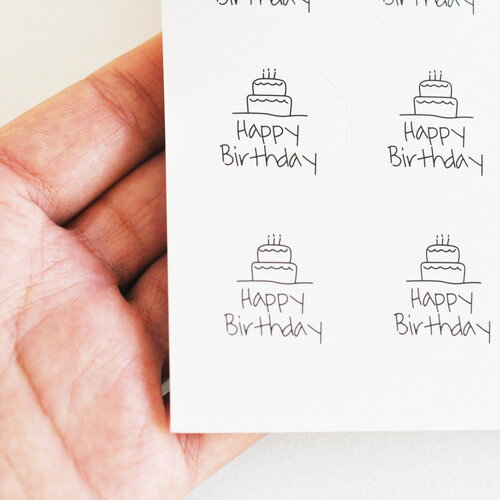 Birthday
Birthday
Happy
Birthday
Happy
Birthday
Happy
Birthday
Happy
Birthday